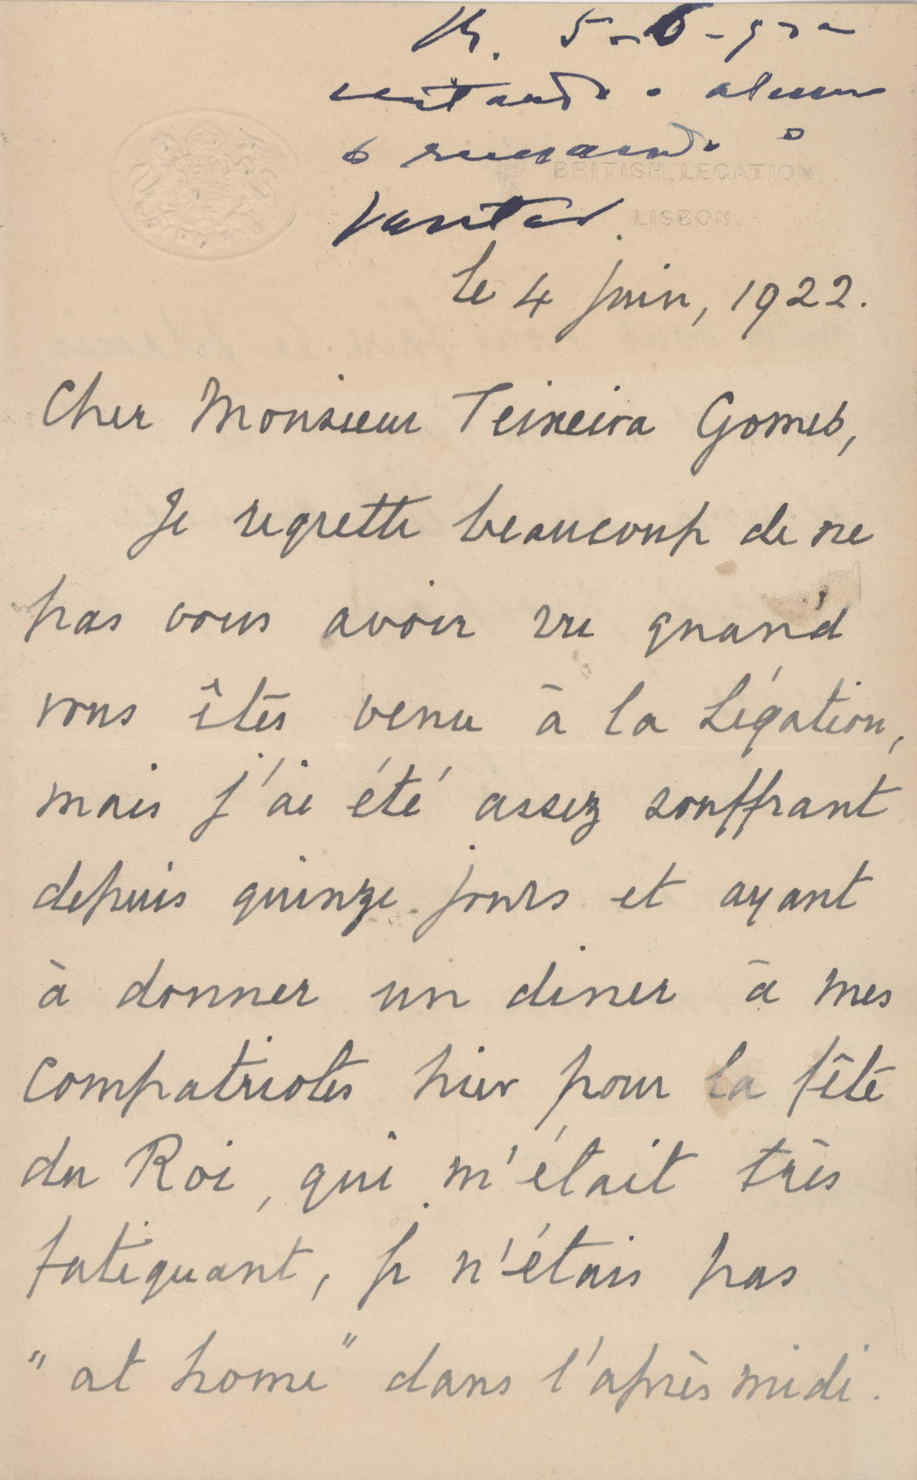 R. 5-6-922
aceitando o almoço
e recusando o
jantar.
BRITISH LEGATION,
LISBON.
le 4 juin, 1922.
Cher Monsieur Teixeira Gomes,
Je regrette beaucoup de ne
pas vous avoir vu quand
vous êtes venu à la Légation,
mais j'ai été assez souffrant
depuis quinze jours et ayant
à donner un diner à mes
compatriotes hier pour la fête
du Roi, qui m'était très
fatiguant, je n'étais pas
"at home" dans l'après midi.